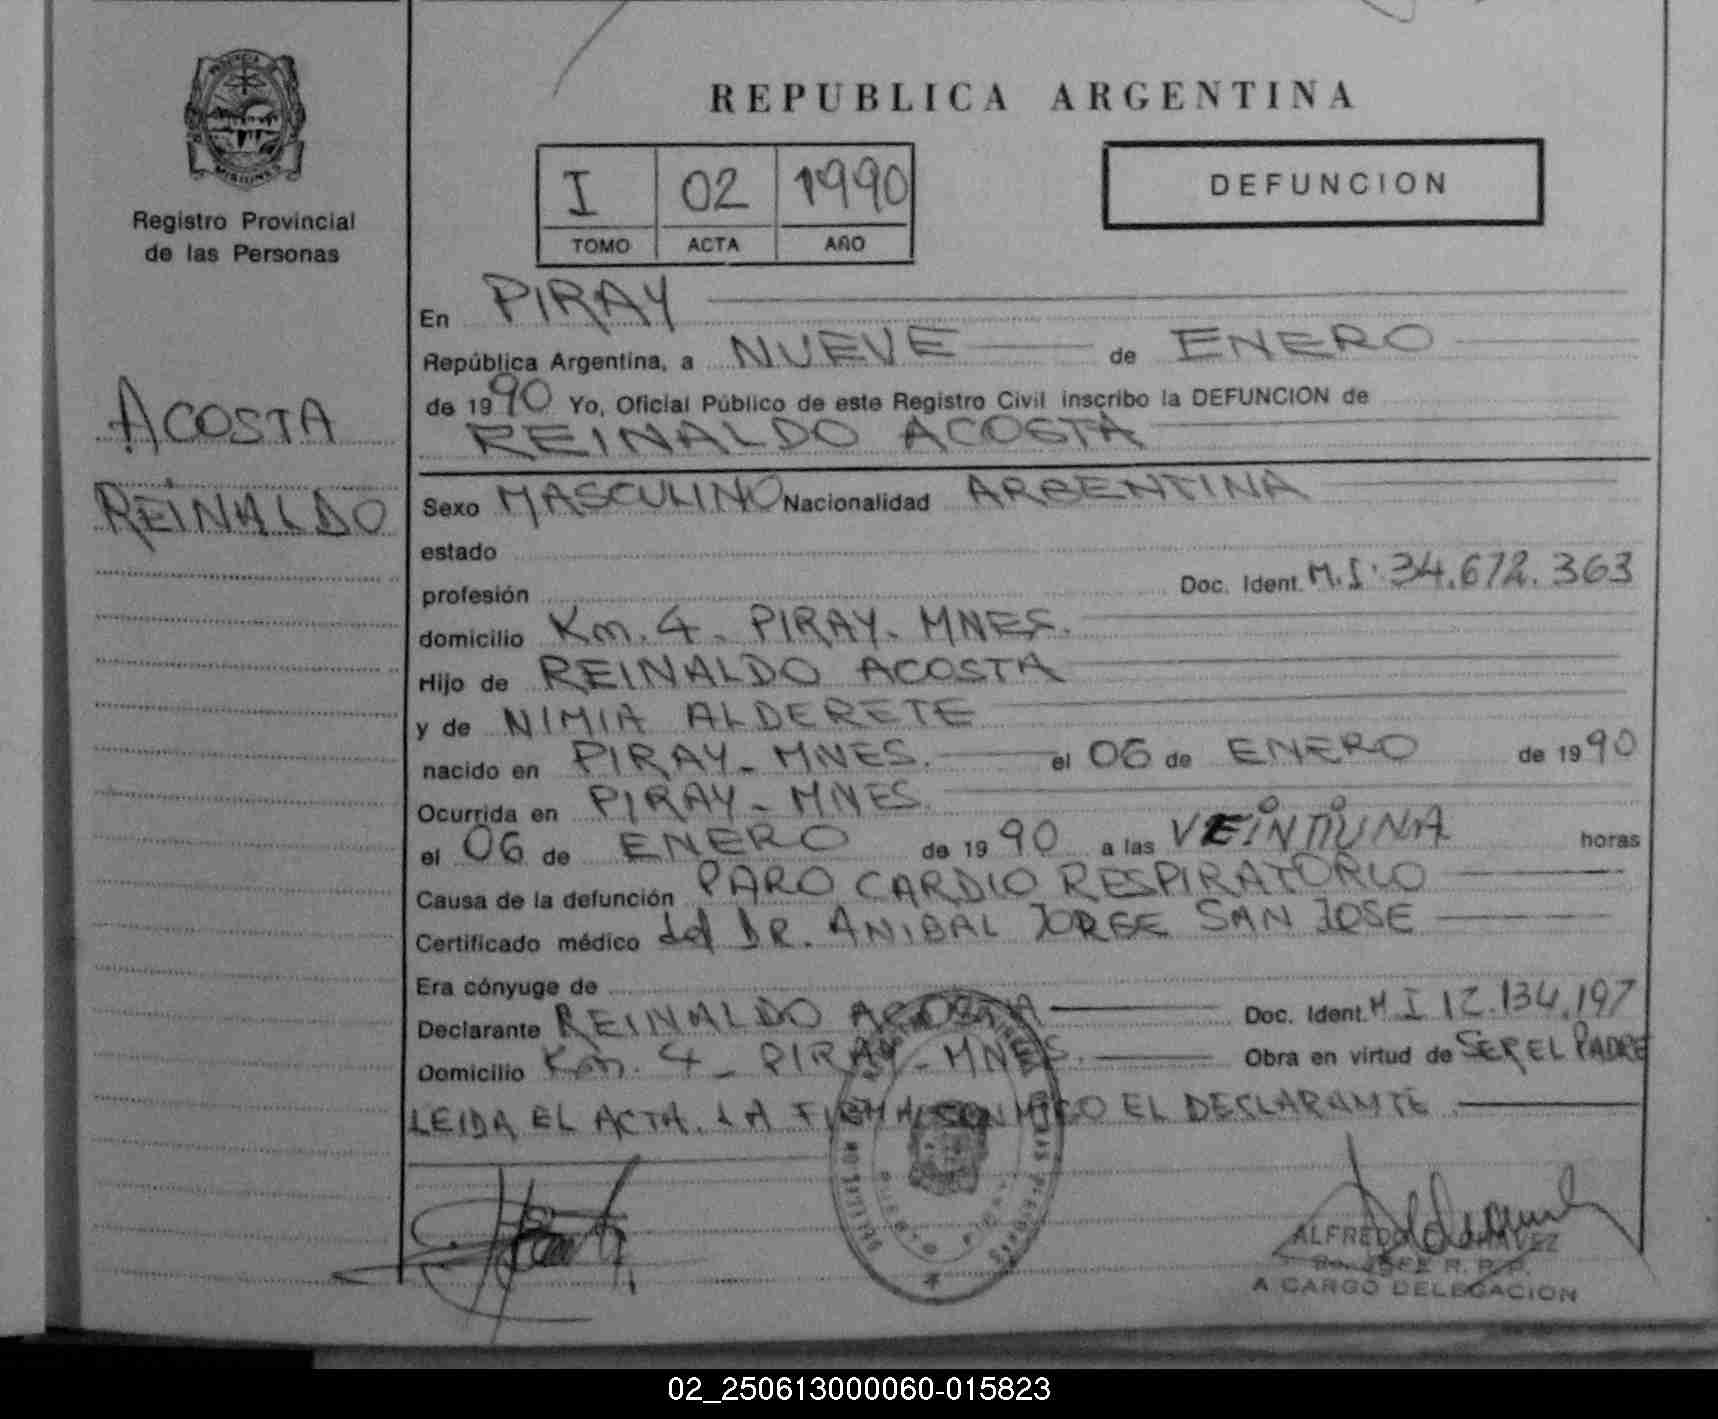 PROVINCIA
MISIONES
Registro Provincial
de las Personas
ACOSTA
REINALDO
REPUBLICA ARGENTINA
I 02 1990
TOMO ACTA AÑO
DEFUNCION
En PIRAY
República Argentina, a NUEVE de ENERO
de 1990 Yo, Oficial Público de este Registro Civil inscribo la DEFUNCION de
REINALDO ACOSTA
Sexo MASCULINO Nacionalidad ARGENTINA
estado
profesión Doc. Ident. M.I. 34.672.363
domicilio Km. 4 - PIRAY - MNES.
Hijo de REINALDO ACOSTA
y de NIMIA ALDERETE
nacido en PIRAY - MNES. el 06 de ENERO de 1990
Ocurrida en PIRAY - MNES.
el 06 de ENERO de 1990 a las VEINTIUNA horas
Causa de la defunción PARO CARDIO RESPIRATORIO
Certificado médico del DR. ANIBAL JORGE SAN JOSE
Era cónyuge de
Declarante REINALDO ACOSTA Doc. Ident. M I 12.134.197
Domicilio Km. 4 - PIRAY - MNES. Obra en virtud de SER EL PADRE
LEIDA EL ACTA. LA FIRMA CONMIGO EL DECLARANTE
ALFREDO CHAVEZ
JEFE R. P. P.
A CARGO DELEGACION
02_250613000060-015823